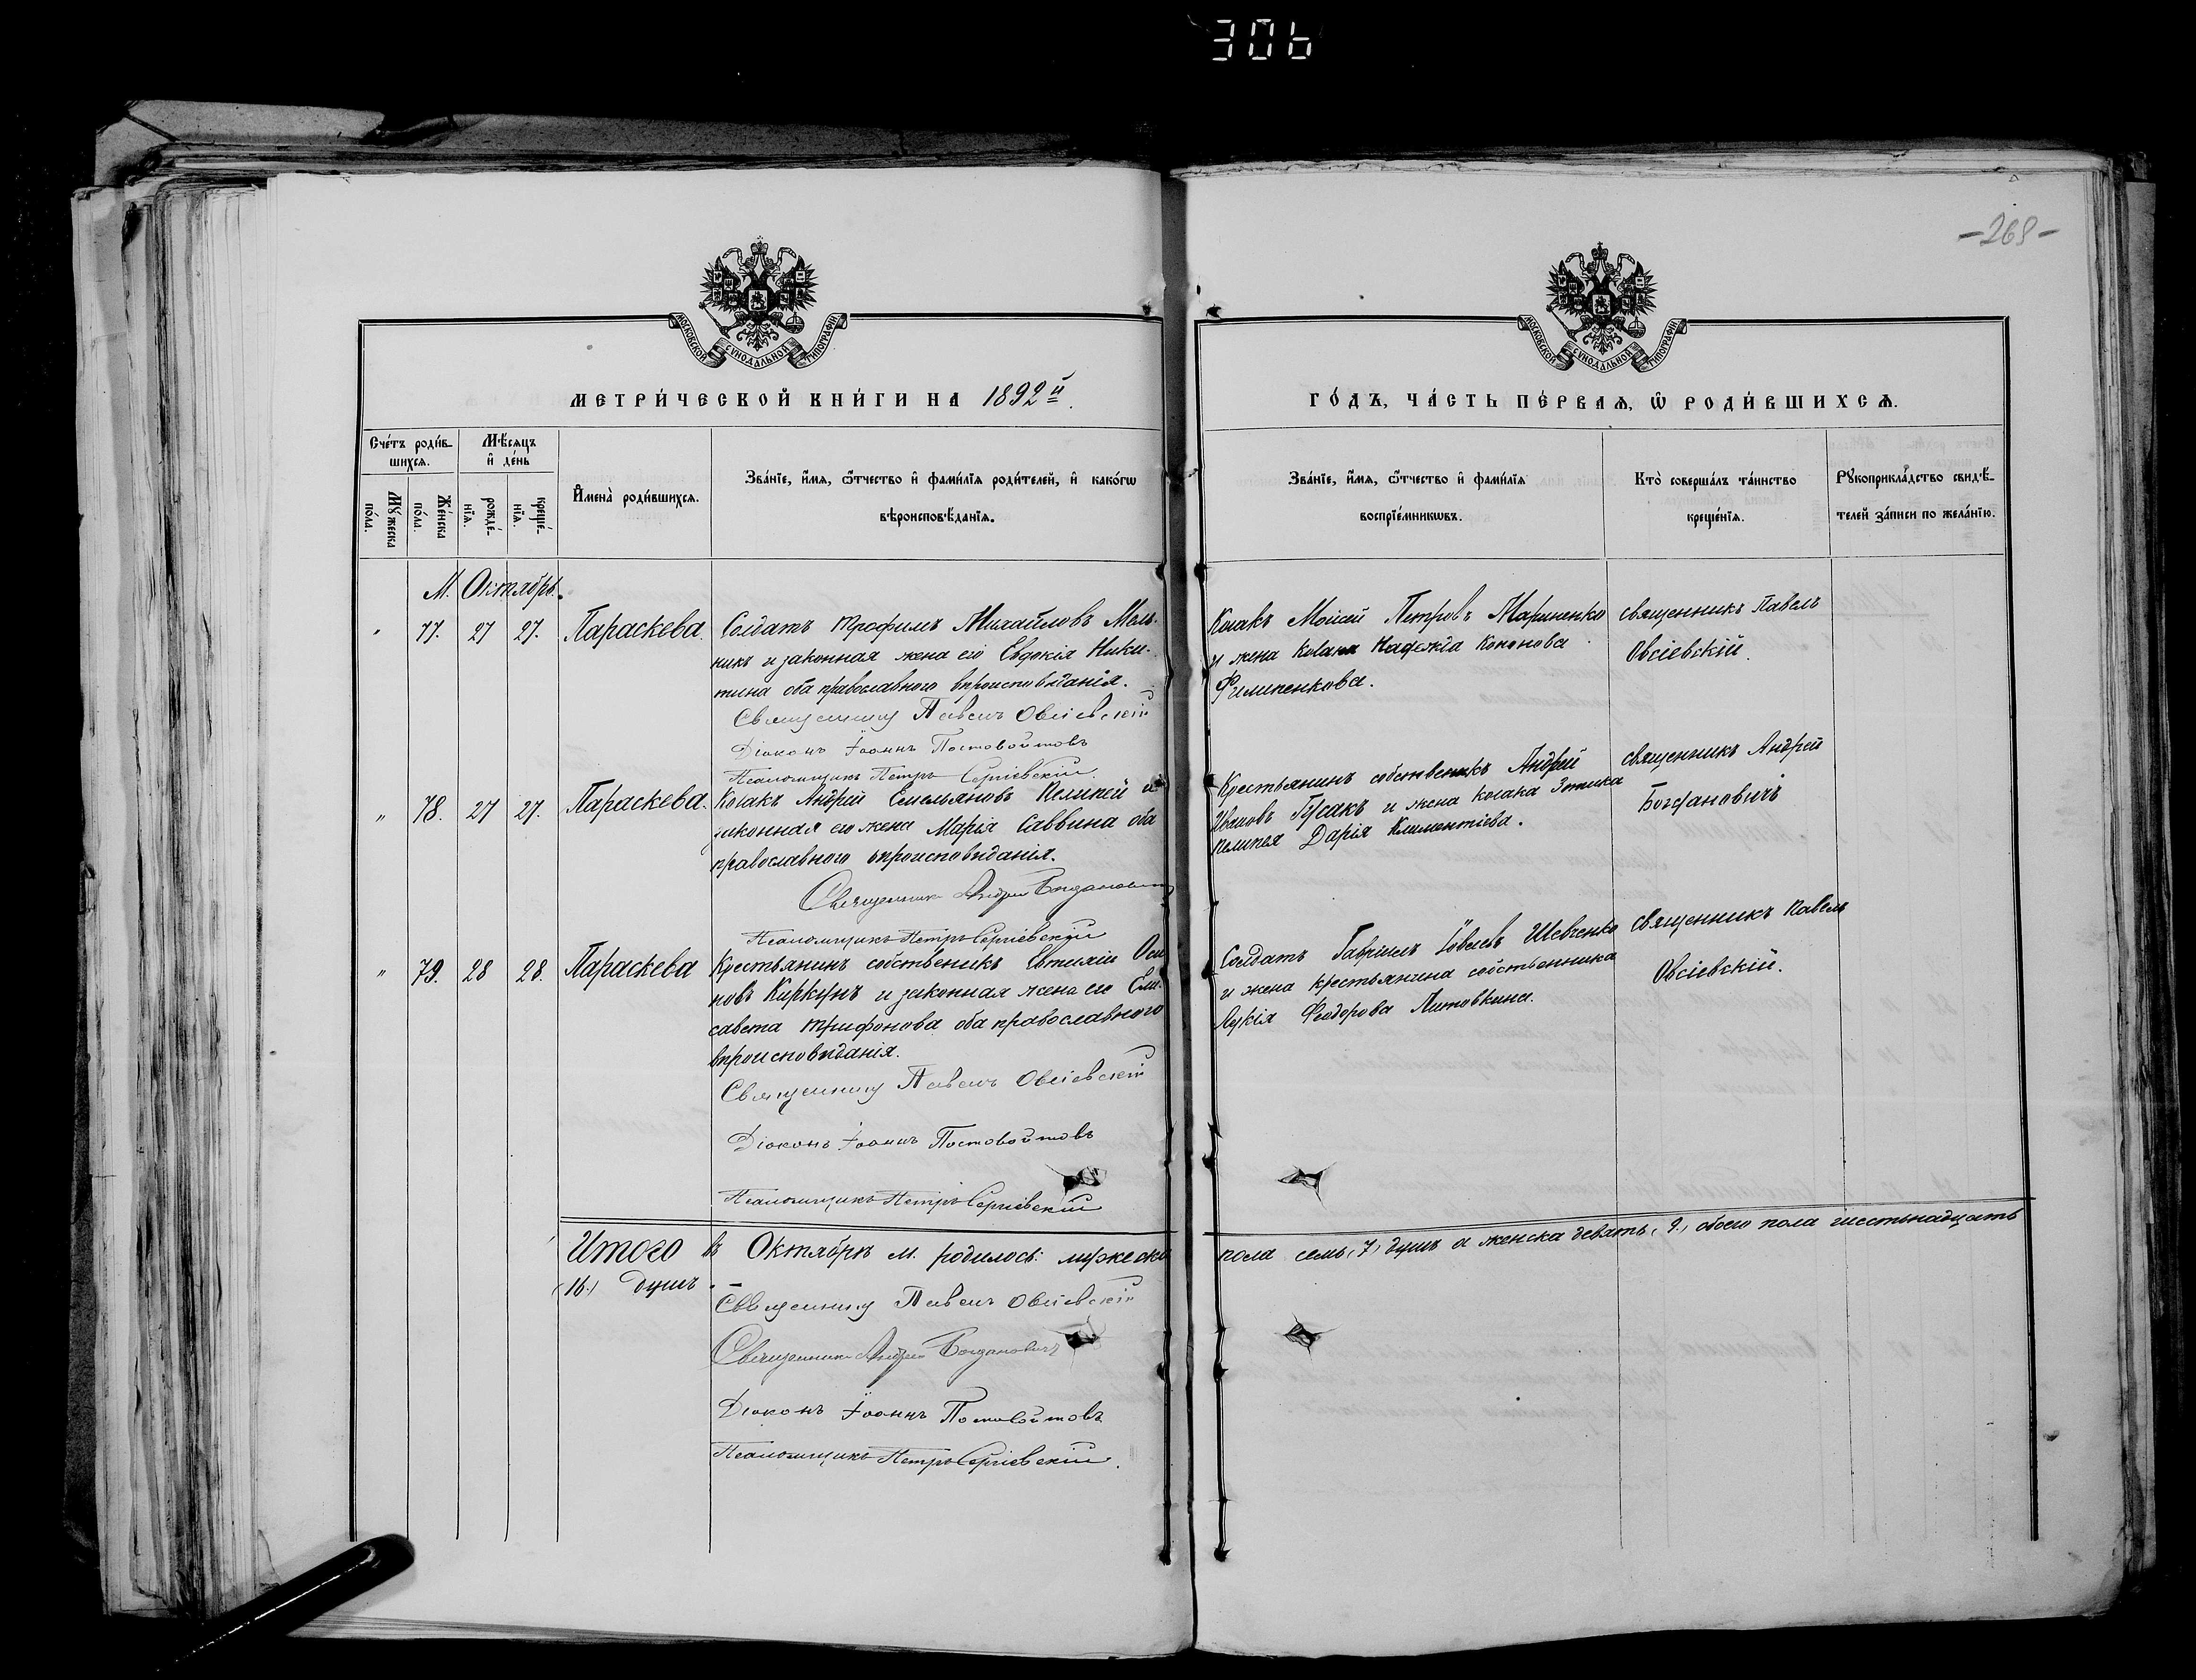 306
-269-
МОСКОВСКОЙ СѴНОДАЛЬНОЙ ТИПОГРАФІИ
МОСКОВСКОЙ СѴНОДАЛЬНОЙ ТИПОГРАФІИ
МЕТРИ́ЧЕСКОЙ КНИ́ГИ НА 1892й.
ГО́ДЪ, ЧА́СТЬ ПЕ́РВАЯ, Ѽ РОДИ́ВШИХСѦ.
Сче́тъ роди́в-
шихсѧ.
Мѣ́сѧцъ
и҆ де́нь
Мꙋ́жеска
по́ла.
Же́нска
по́ла.
рожде́-
нїѧ.
креще́-
нїѧ.
И҆мена̀ роди́вшихсѧ.
Зва́нїе, и҆́мѧ, ѻ҆́тчество и҆ фами́лїѧ роди́телей, и҆ како́гѡ
вѣроисповѣ́данїѧ.
Зва́нїе, и҆́мѧ, ѻ҆́тчество и҆ фами́лїѧ
воспрїе́мникѡвъ.
Кто̀ соверша́лъ та́инство
креще́нїѧ.
Рꙋкоприкла́дство свидѣ́-
телей за́писи по жела́нїю.
М. Октябрь.
" 77. 27 27. Параскева. Солдатъ Трофимъ Михайловъ Мель-
никъ и законная жена его Евдокія Ники-
тина оба православнаго вѣроисповѣданія.
Священникъ Павелъ Овсіевскій
Діаконъ Іоаннъ Постовойтовъ
Псаломщикъ Петръ Сергіевскій.
Козакъ Моисей Петровъ Мариненко
и жена козака Надежда Кононова
Филипенкова.
священникъ Павелъ
Овсіевскій.
" 78. 27 27. Параскева. Козакъ Андрей Емельяновъ Пелипей и
законная его жена Марія Саввина оба
православнаго вѣроисповѣданія.
Священникъ Андрей Богдановичъ
Псаломщикъ Петръ Сергіевскій
Крестьянинъ собственикъ Андрей
Ивановъ Гусакъ и жена козака Зотика
Пелипея Дарія Климентіева.
священникъ Андрей
Богдановичъ
" 79. 28 28. Параскева Крестьянинъ собственикъ Евтихій Оси
повъ Киркунъ и законная жена его Ели-
савета Трифонова оба православнаго
вѣроисповѣданія.
Священникъ Павелъ Овсіевскій
Діаконъ Іоаннъ Постовойтовъ
Псаломщикъ Петръ Сергіевскій
Солдатъ Гавріилъ Іовлевъ Шевченко
и жена крестьянина собственника
Лукія Феодорова Литовкина.
священникъ Павелъ
Овсіевскій.
Итого въ Октябрѣ м. родилось: мужеска пола семь (7) душъ а женска девять (9) обоего пола шестьнадцать
(16) душъ.
Священникъ Павелъ Овсіевскій
Священникъ Андрей Богдановичъ
Діаконъ Іоаннъ Постовойтовъ
Псаломщикъ Петръ Сергіевскій.